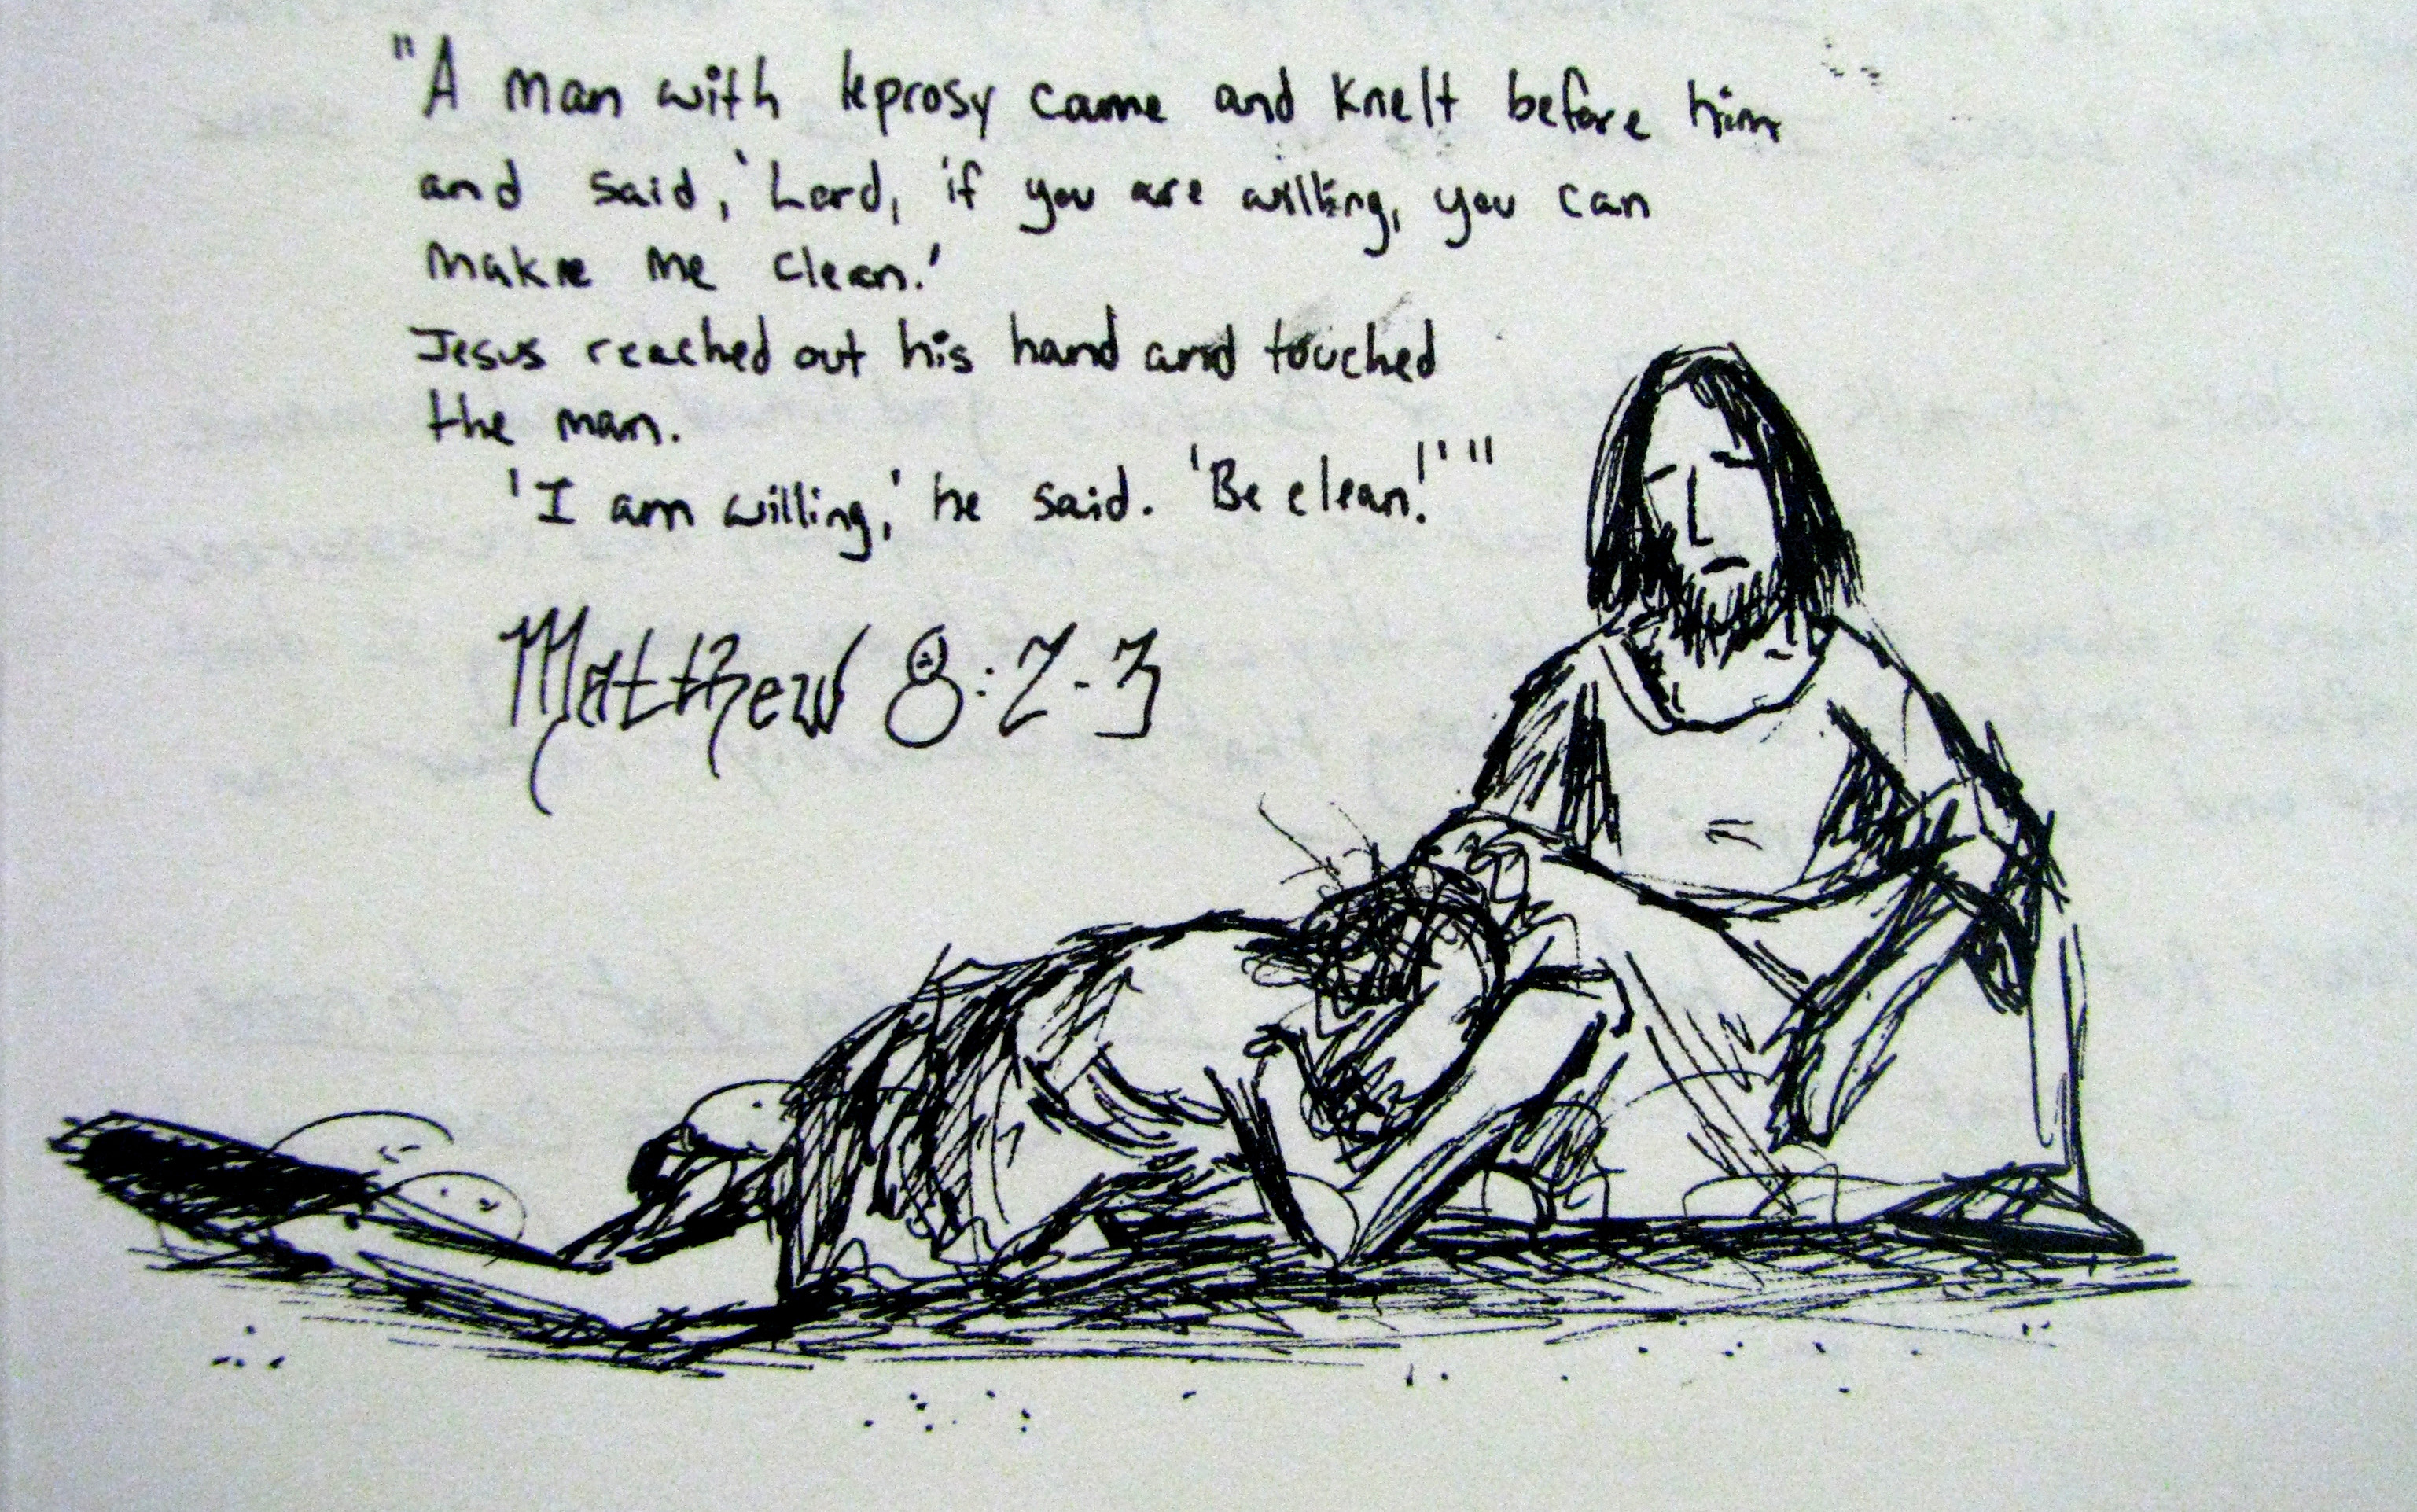 "A man with leprosy came and knelt before him
and said, 'Lord, if you are willing, you can
make me clean.'
Jesus reached out his hand and touched
the man.
'I am willing,' he said. 'Be clean!'"
Matthew 8:2-3